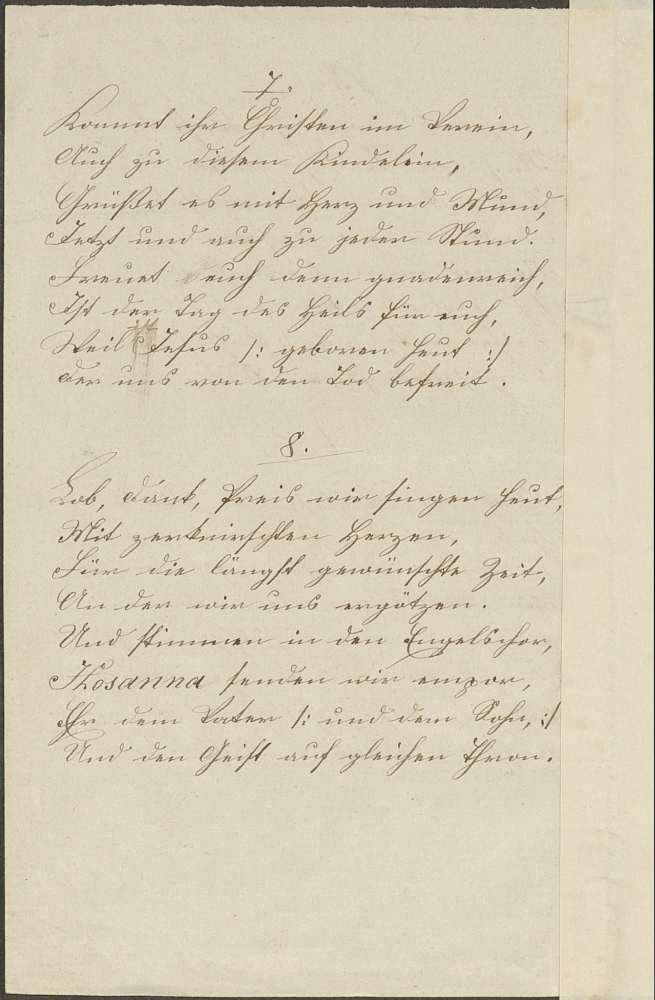 7.
Kommt ihr Christen im Verein,
Auch zu diesem Kindelein,
Grüßet es mit Herz und Mund,
Jetzt und auch zu jeder Stund.
Freuet euch denn gnadenreich,
Ist der Tag des Heils für euch,
Weil Jesus /: geboren heut :/
Der uns von den Tod befreit.
8.
Lob, Dank, Preis wir singen heut,
Mit zerknirschten Herzen,
Für die längst gewünschte Zeit,
An der wir uns ergötzen.
Und stimmen in den Engelschor,
Hosanna senden wir empor,
Ehr dem Vater /: und dem Sohn, :/
Und den Geist auf gleichen Thron.